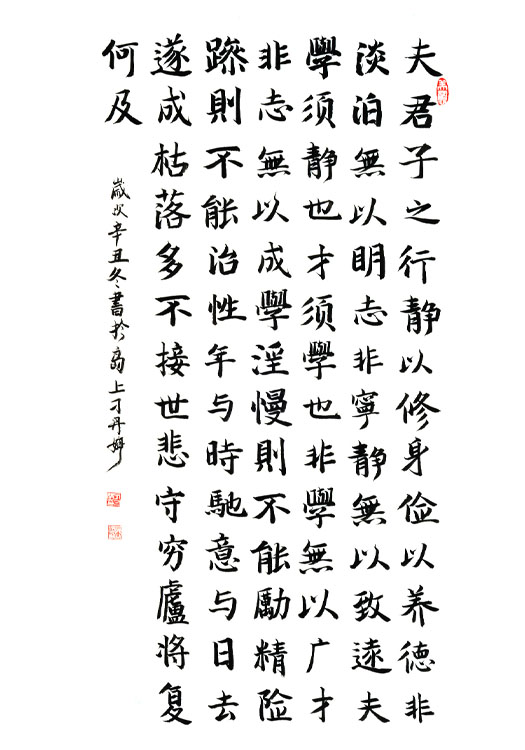 夫君子之行静以修身俭以养德非
淡泊無以明志非寧静無以致遠夫
學须静也才须學也非學無以广才
非志無以成學淫慢則不能勵精险
躁則不能治性年与時馳意与日去
遂成枯落多不接世悲守穷廬将复
何及
歲次辛丑冬書於商上刁丹